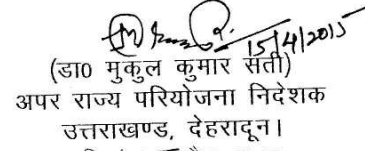 15/4/2015
(डा० मुकुल कुमार सती)
अपर राज्य परियोजना निदेशक
उत्तराखण्ड, देहरादून।